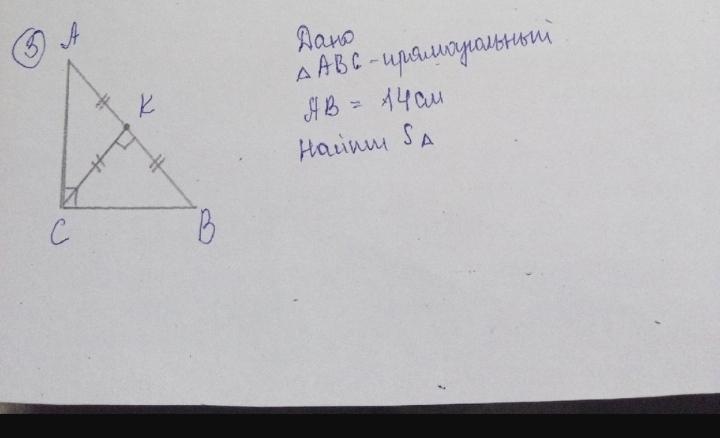 3
A
K
C
B
Дано
△ABC - прямоугольный
AB = 14см
Найти S△